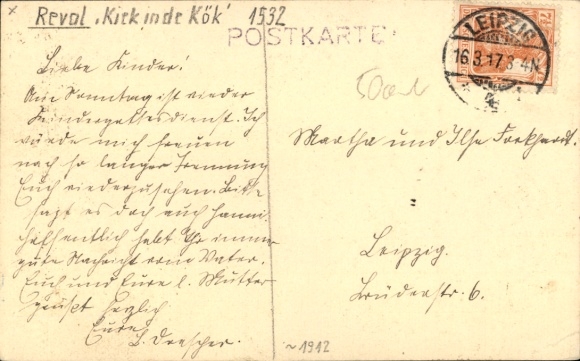 Reval „Kiek in de Kök" 1532
POSTKARTE
LEIPZIG
16.3.17.3-4N
Liebe Kinder!
Am Sonntag ist wieder
Kindergottesdienst. Ich
würde mich freuen
nach so langer Trennung
Euch wiederzusehen. Bitte
sagt es doch auch Hanni
hoffentlich habt Ihr immer
gute Nachricht vom Vater.
Euch und Eure l. Mutter
grüsst herzlich
Eure
Drescher.
Martha und Ilse Forkhardt.
Leipzig.
Brüderstr. 6.
~1912